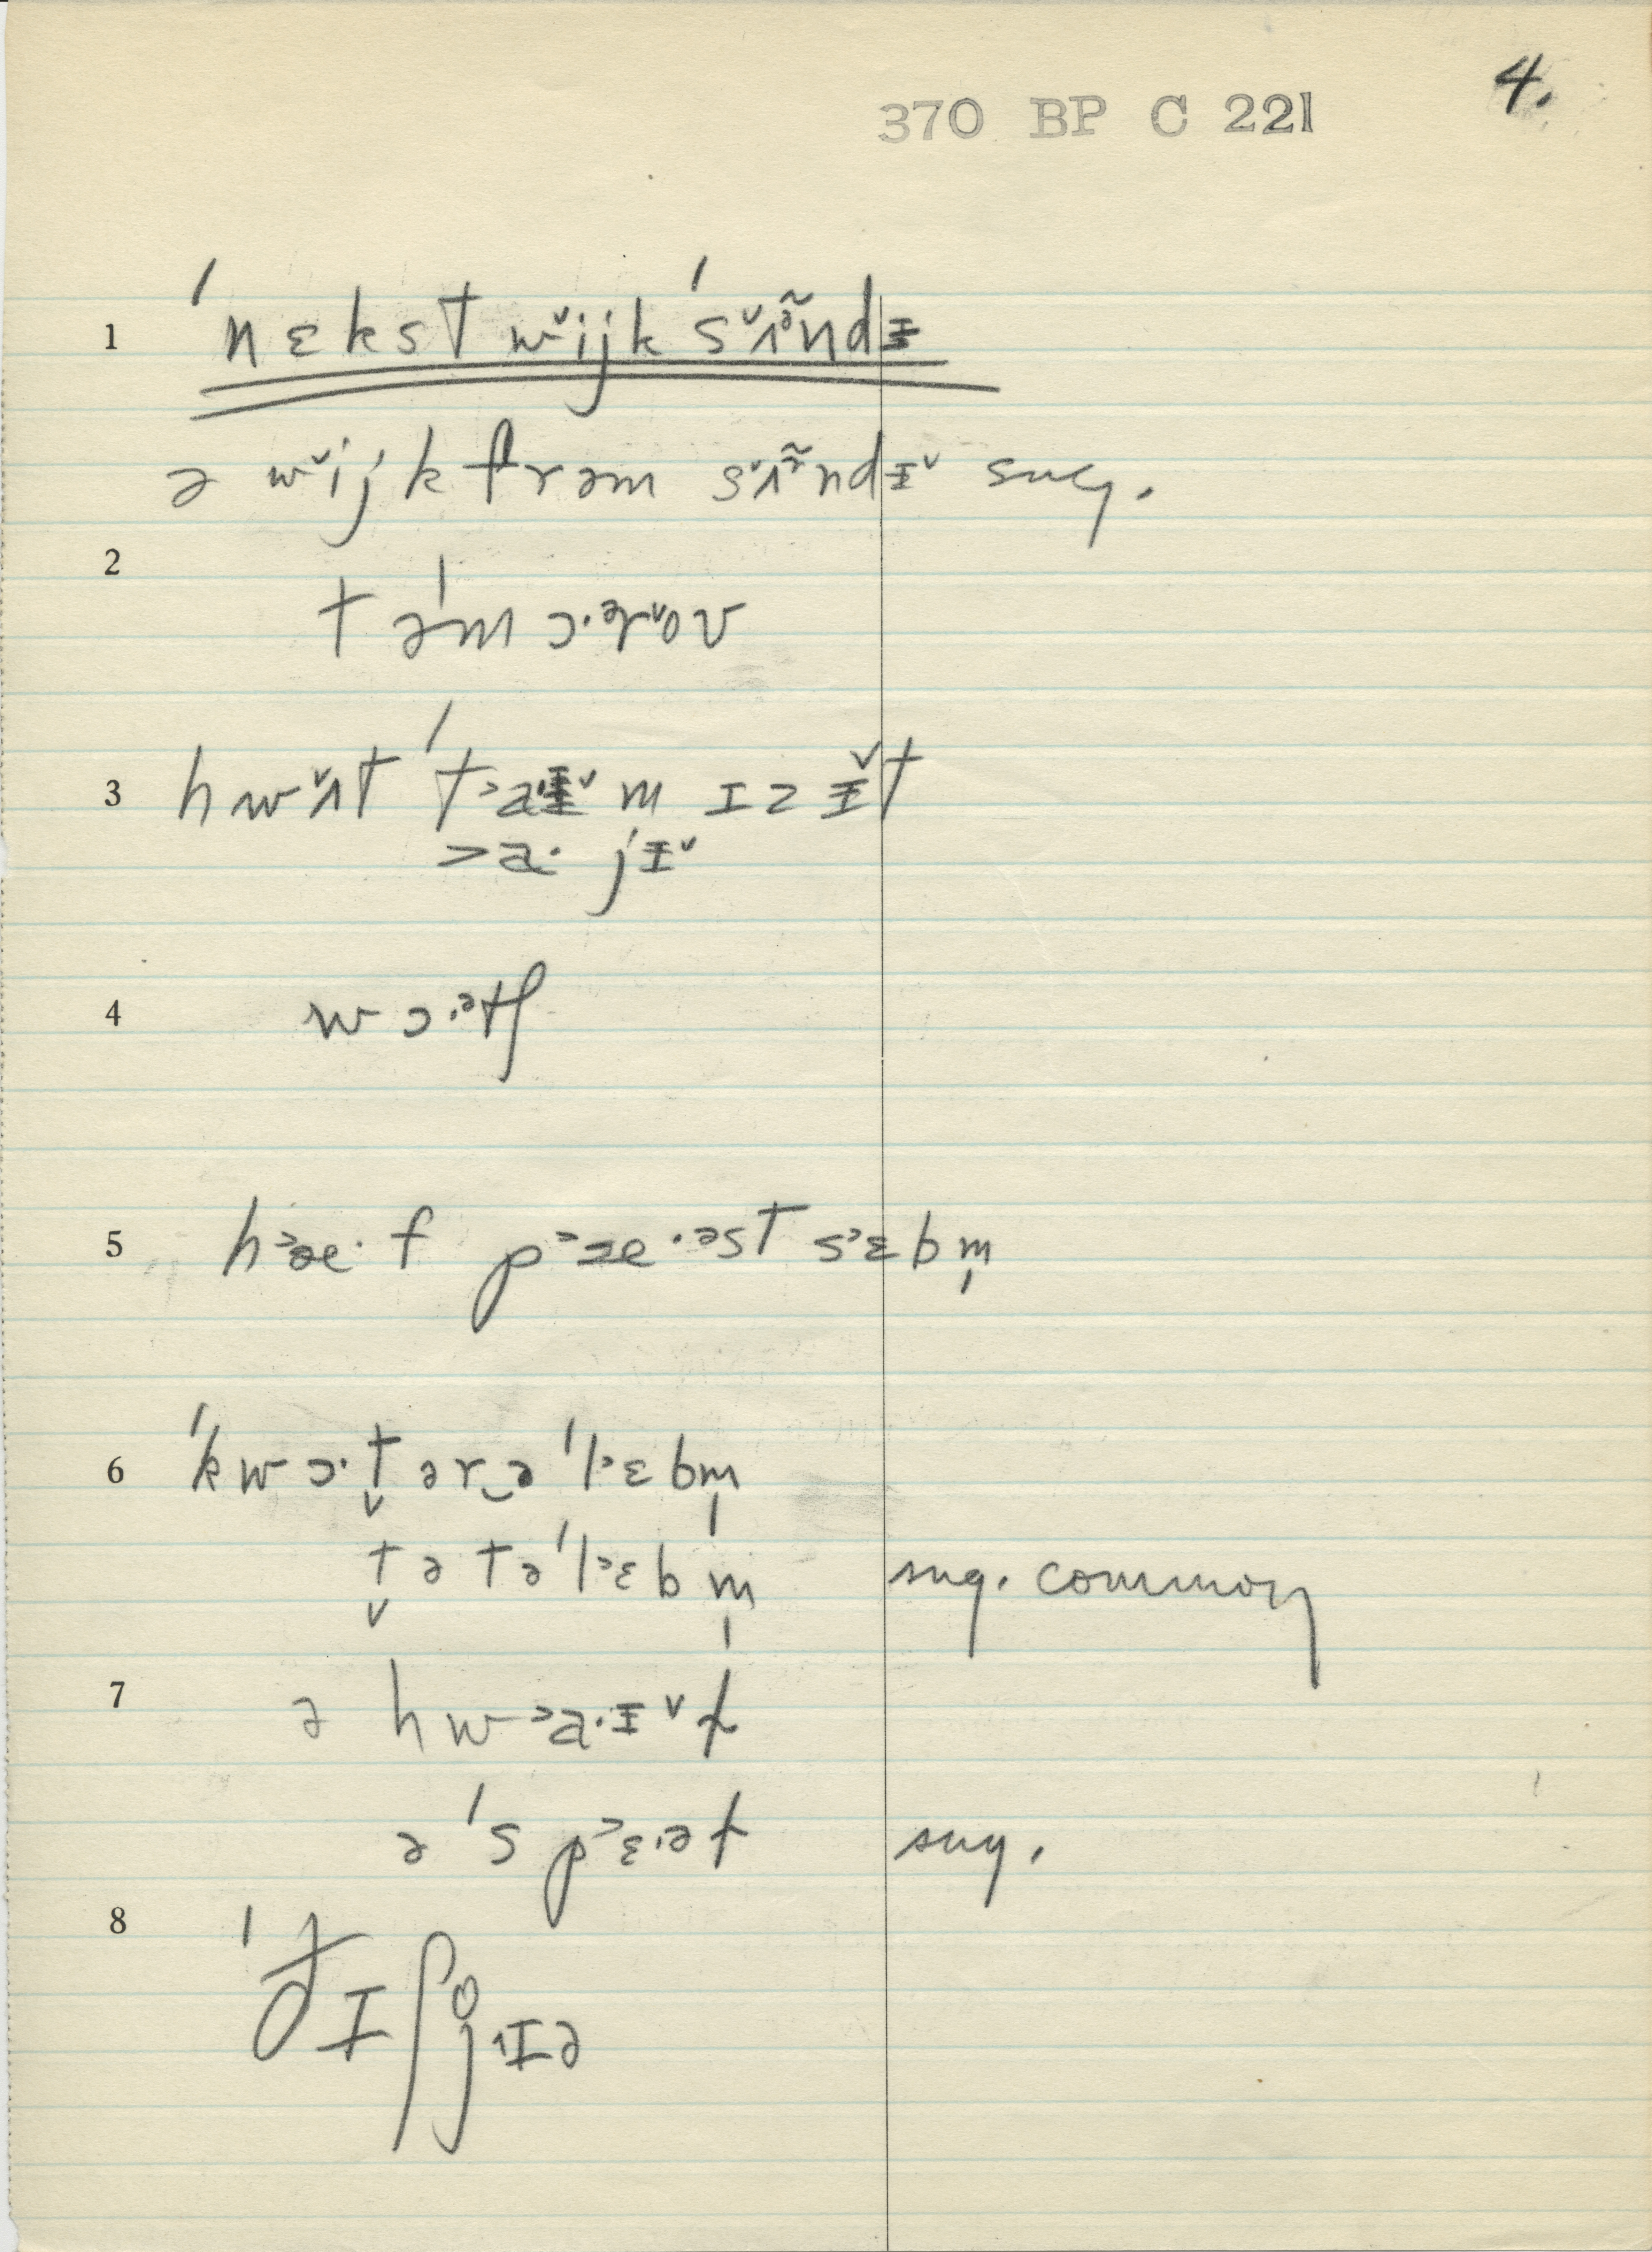 370 BP C 221
4.
1 ˈnɛkst wᵛijk ˈsᵛʌᵊ̃ndɪ
ə wᵛijk frəm sᵛʌᵊ̃ndɪᵛ sug.
2
təˈm ɔ.ᵊrᵛoᵛ
3 hwᵛʌt ˈt˃aɪᵛm ɪz ɪᵛt
˃a· jɪᵛ
4 wɔ.ᵊtʃ
5 h˃æ· f p˃æ·ᵊst s˃ɛbm̩
6 ˈkwɔ·t̬ər‿ə ˈl˃ɛbm̩
t̬ə tə ˈl˃ɛbm̩ sug. common
7 ə hw˃a·ɪᵛt
ə ˈs p˃ɛ·ət sug.
8 ˈðɪʃj̊ɪə